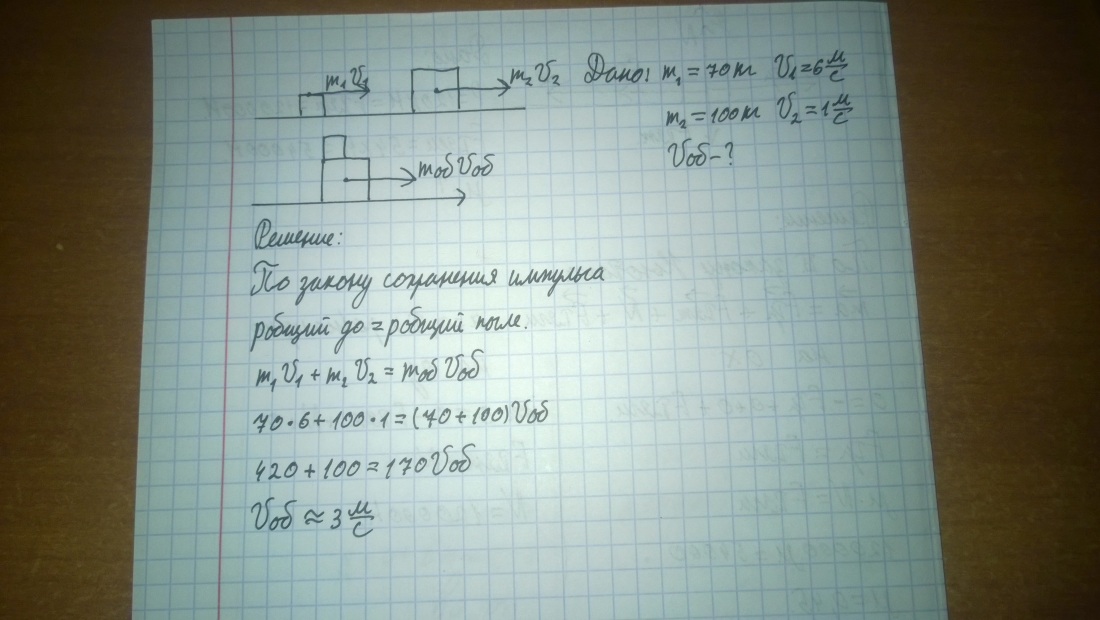 m₁V₁
m₂V₂
Дано: m₁ = 70 кг V₁ = 6 м/с
m₂ = 100 кг V₂ = 1 м/с
Vоб - ?
mобVоб
Решение:
По закону сохранения импульса
pобщий до = pобщий после.
m₁V₁ + m₂V₂ = mобVоб
70·6 + 100·1 = (70 + 100)Vоб
420 + 100 = 170Vоб
Vоб ≈ 3 м/с